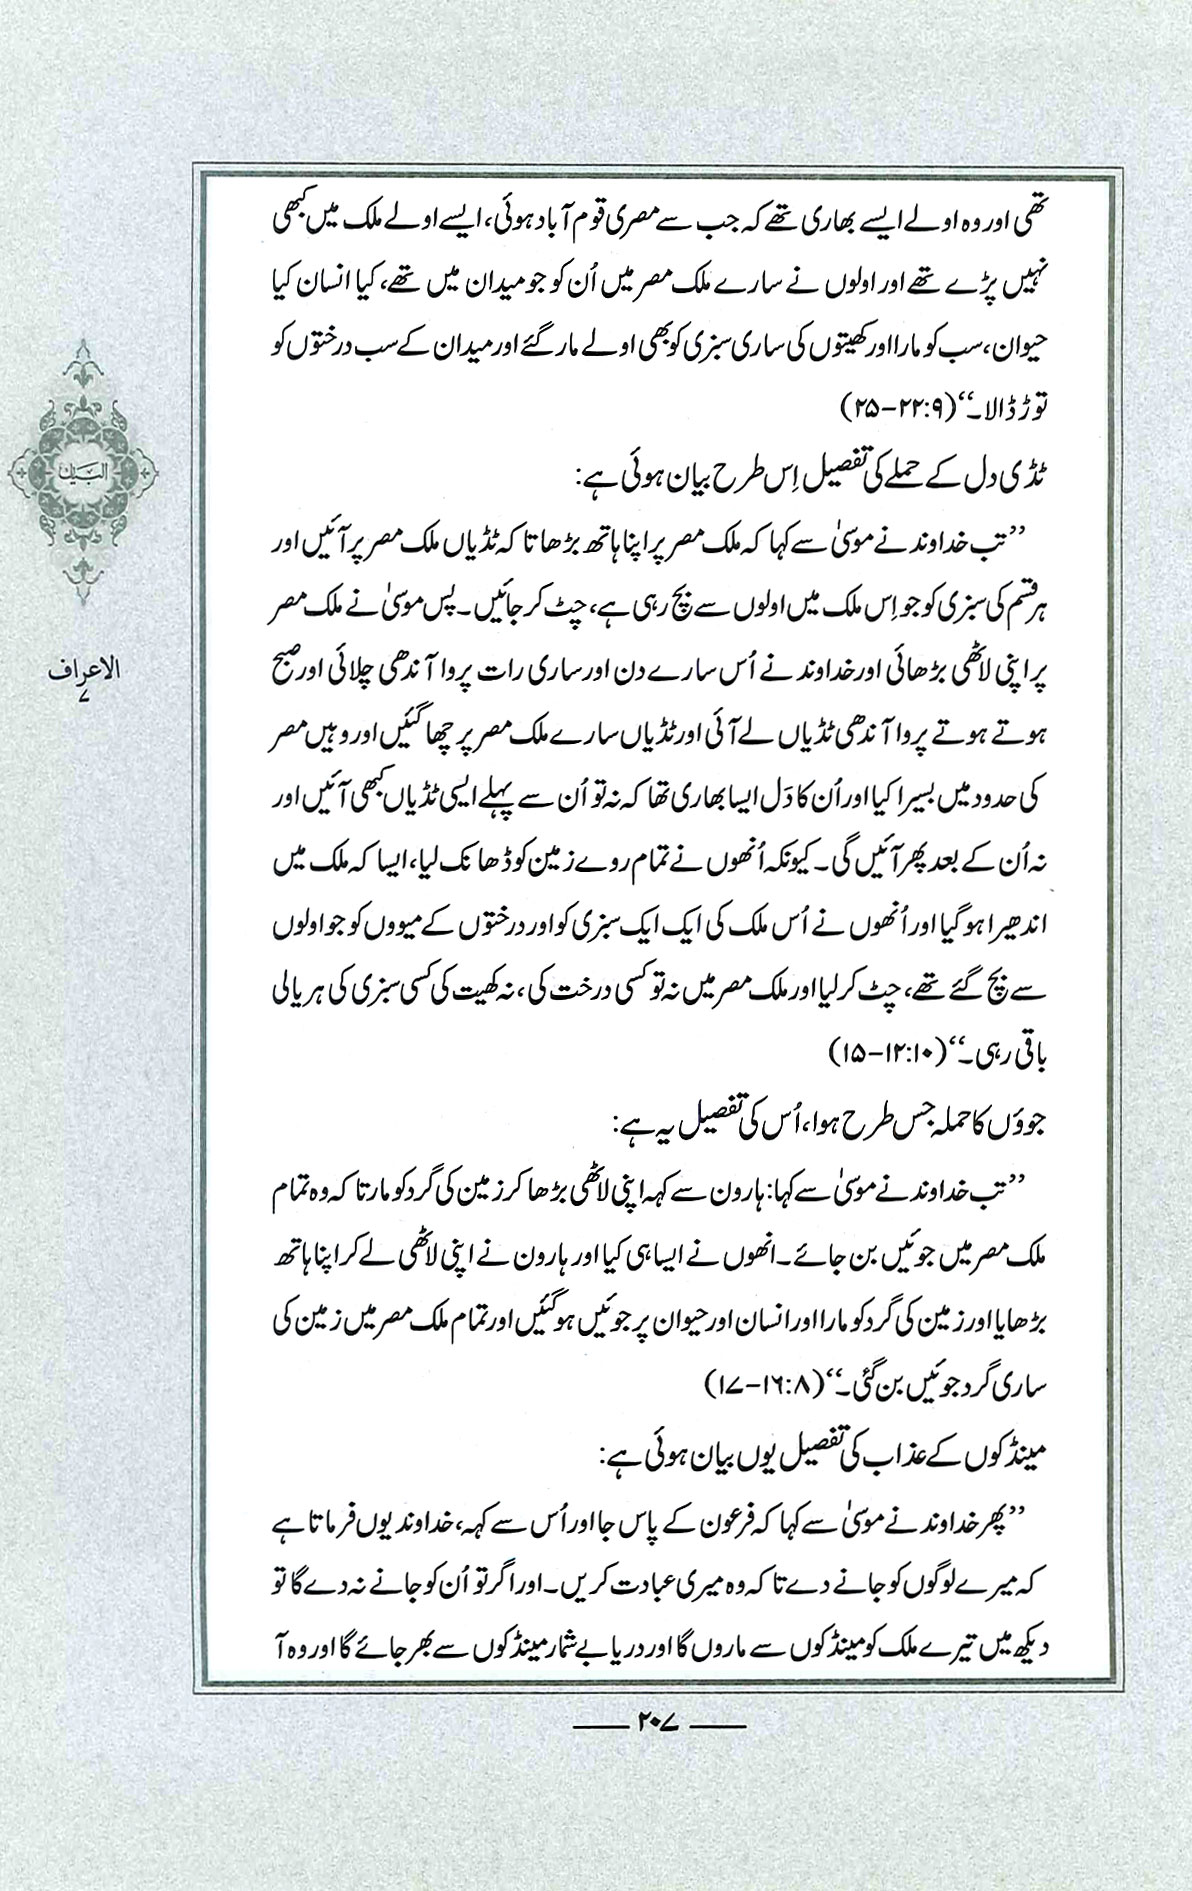 تھی اور وہ اولے ایسے بھاری تھے کہ جب سے مصری قوم آباد ہوئی، ایسے اولے ملک میں کبھی
نہیں پڑے تھے اور اولوں نے سارے ملک مصر میں اُن کو جو میدان میں تھے، کیا انسان کیا
حیوان، سب کو مارا اور کھیتوں کی ساری سبزی کو بھی اولے مار گئے اور میدان کے سب درختوں کو
توڑ ڈالا۔‘‘ (۹:۲۲-۲۵)
ٹڈی دل کے حملے کی تفصیل اِس طرح بیان ہوئی ہے:
’’تب خداوند نے موسیٰ سے کہا کہ ملک مصر پر اپنا ہاتھ بڑھا تا کہ ٹڈیاں ملک مصر پر آئیں اور
ہر قسم کی سبزی کو جو اِس ملک میں اولوں سے بچ رہی ہے، چٹ کر جائیں۔ پس موسیٰ نے ملک مصر
پر اپنی لاٹھی بڑھائی اور خداوند نے اُس سارے دن اور ساری رات پروا آندھی چلائی اور صبح
ہوتے ہوتے پروا آندھی ٹڈیاں لے آئی اور ٹڈیاں سارے ملک مصر پر چھا گئیں اور وہیں مصر
کی حدود میں بسیرا کیا اور اُن کا دَل ایسا بھاری تھا کہ نہ تو اُن سے پہلے ایسی ٹڈیاں کبھی آئیں اور
نہ اُن کے بعد پھر آئیں گی۔ کیونکہ اُنھوں نے تمام روے زمین کو ڈھانک لیا، ایسا کہ ملک میں
اندھیرا ہو گیا اور اُنھوں نے اُس ملک کی ایک ایک سبزی کو اور درختوں کے میووں کو جو اولوں
سے بچ گئے تھے، چٹ کر لیا اور ملک مصر میں نہ تو کسی درخت کی، نہ کھیت کی کسی سبزی کی ہریالی
باقی رہی۔‘‘ (۱۰:۱۲-۱۵)
جووَں کا حملہ جس طرح ہوا، اُس کی تفصیل یہ ہے:
’’تب خداوند نے موسیٰ سے کہا: ہارون سے کہہ اپنی لاٹھی بڑھا کر زمین کی گرد کو مار تا کہ وہ تمام
ملک مصر میں جوئیں بن جائے۔ انھوں نے ایسا ہی کیا اور ہارون نے اپنی لاٹھی لے کر اپنا ہاتھ
بڑھایا اور زمین کی گرد کو مارا اور انسان اور حیوان پر جوئیں ہو گئیں اور تمام ملک مصر میں زمین کی
ساری گرد جوئیں بن گئی۔‘‘ (۸:۱۶-۱۷)
مینڈکوں کے عذاب کی تفصیل یوں بیان ہوئی ہے:
’’پھر خداوند نے موسیٰ سے کہا کہ فرعون کے پاس جا اور اُس سے کہہ، خداوند یوں فرماتا ہے
کہ میرے لوگوں کو جانے دے تا کہ وہ میری عبادت کریں۔ اور اگر تو اُن کو جانے نہ دے گا تو
دیکھ میں تیرے ملک کو مینڈکوں سے ماروں گا اور دریا بے شمار مینڈکوں سے بھر جائے گا اور وہ آ
البیان
الاعراف
۷
۲۰۷